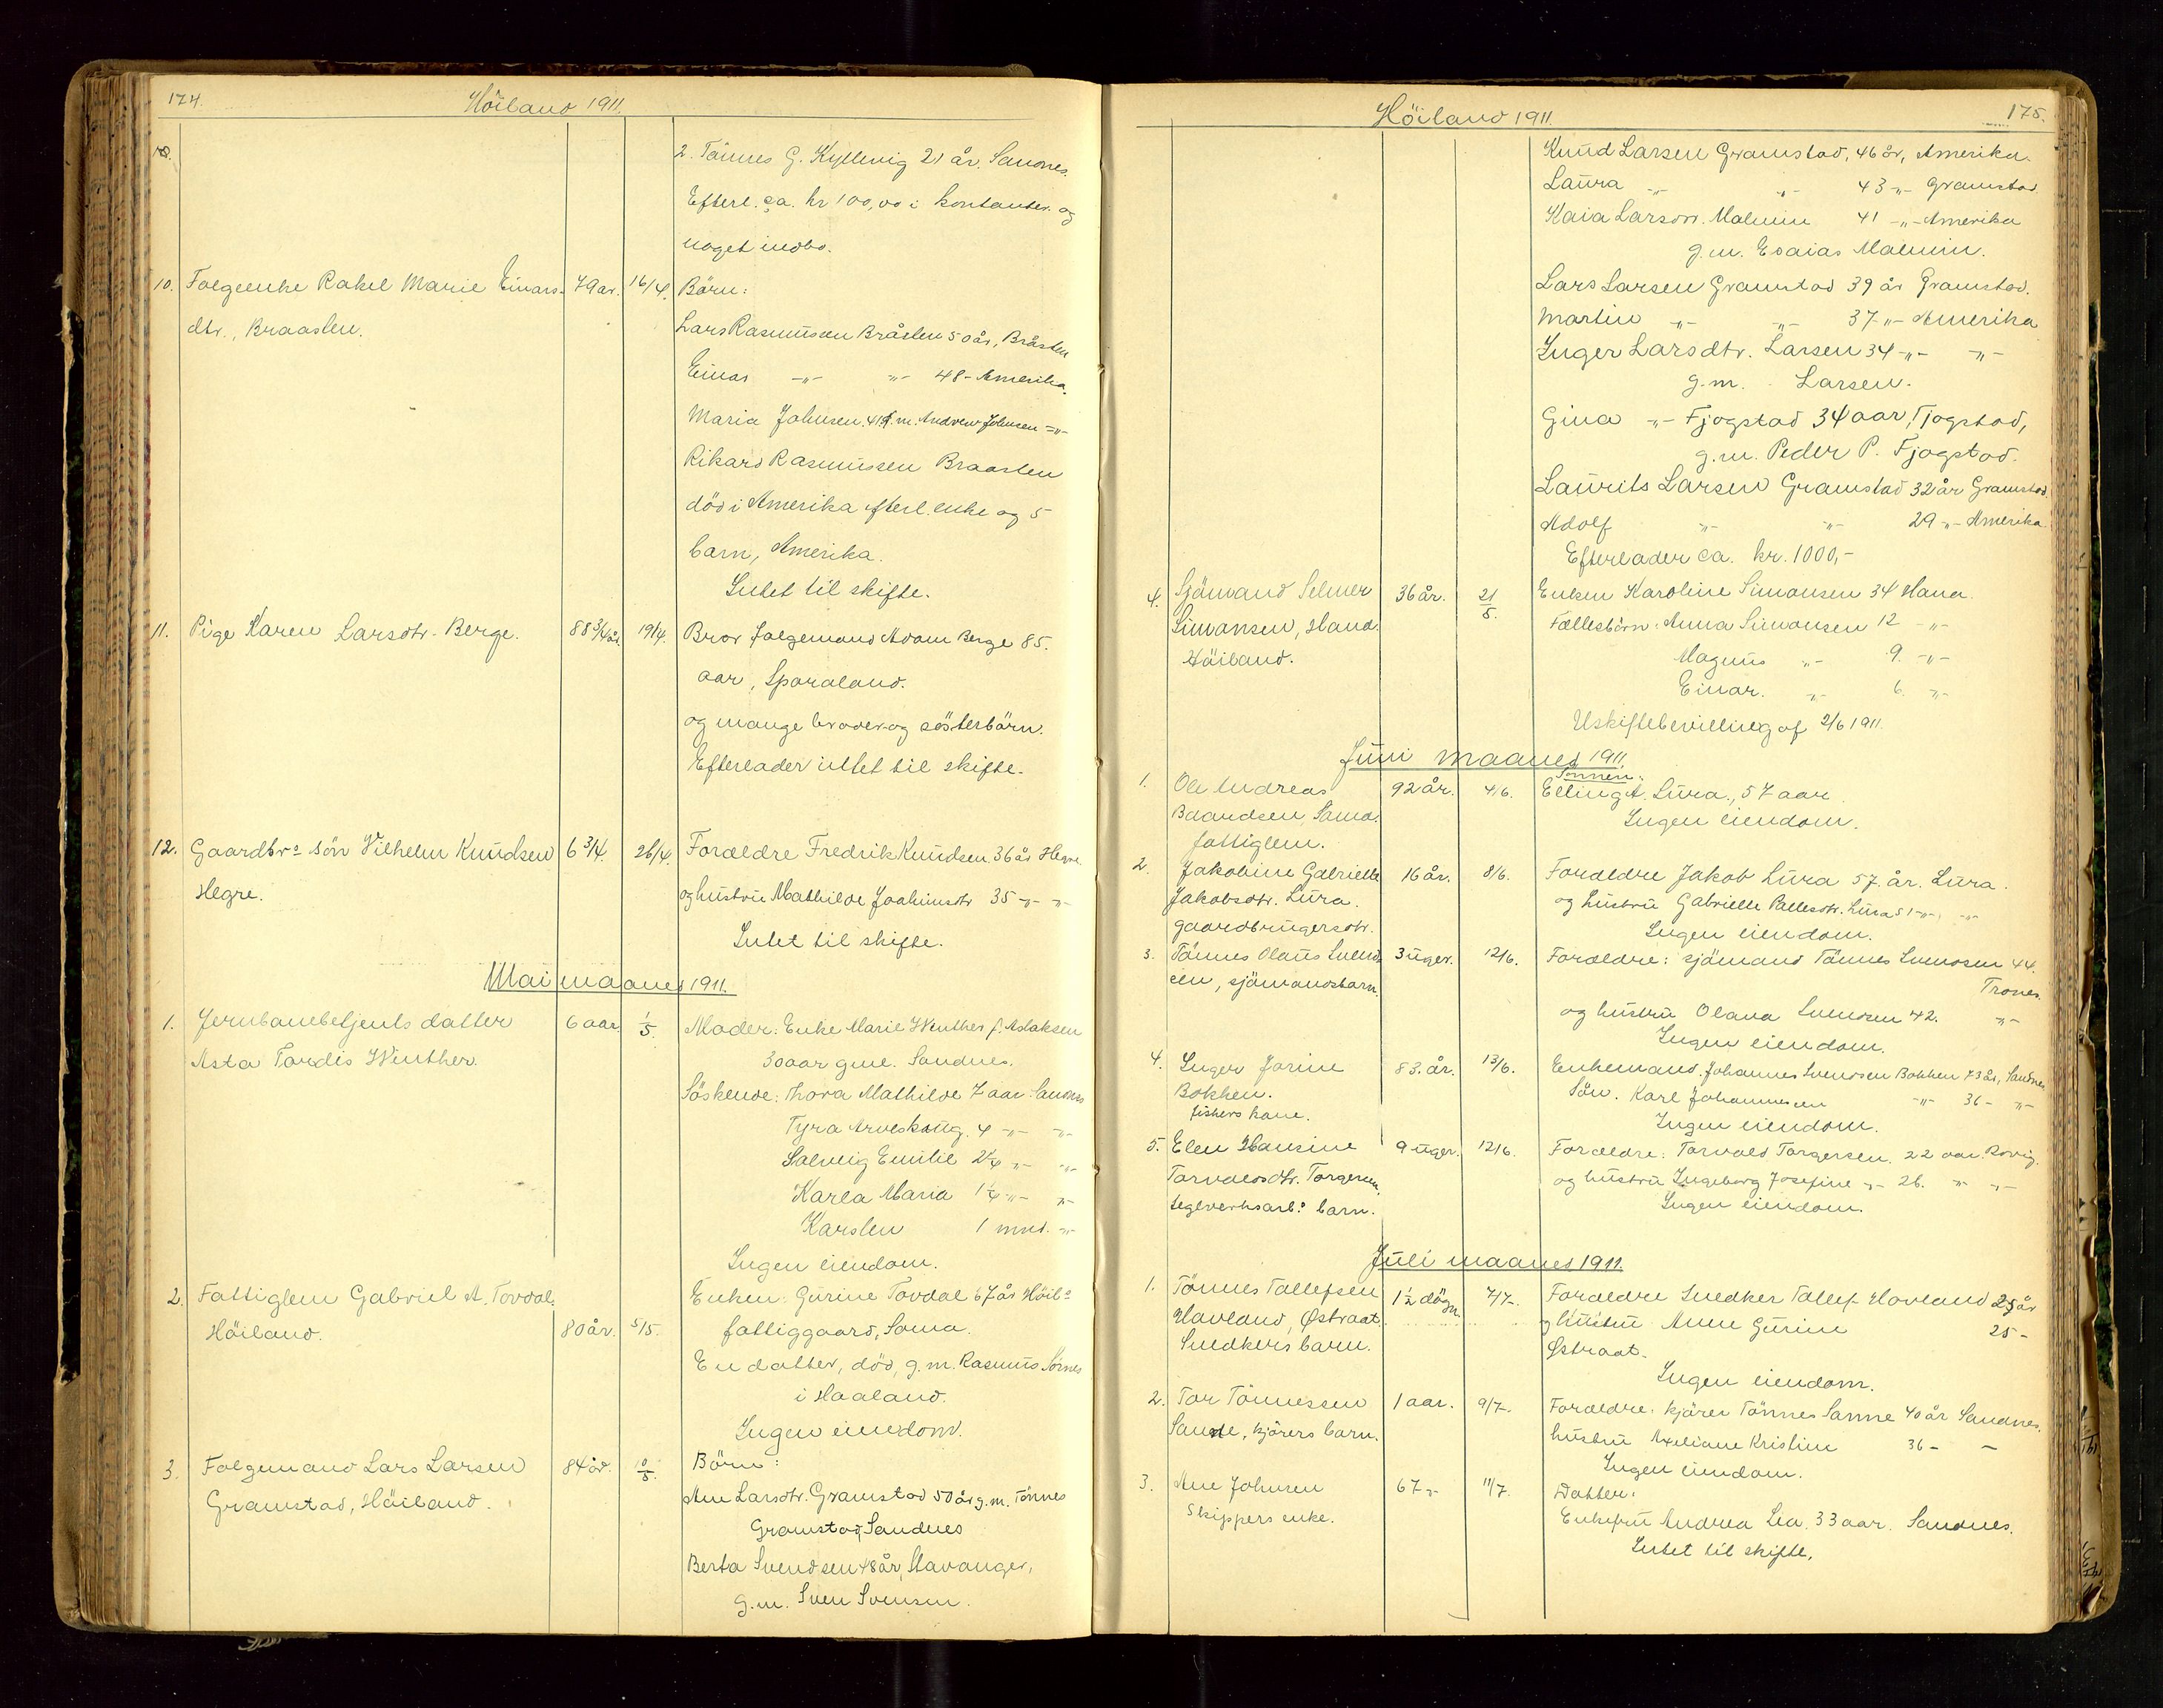 174.
Höiland 1911.
2. Tönnes G. Kyllevig 21 år. Sandnes.
Efterl. ca. kr 100,00 i kontanter og
noget indbo.
10. Folgeenke Rakel Marie Einars- 79 ar. 16/4. Börn:
dtr., Braasten. Lars Rasmussen Bråsten 50 år, Bråsten
Einar -"- -"- 48 - Amerika.
Maria Johnsen. 41 g.m. Andrew Johnsen -"-
Rikard Rasmussen Braasten
död i Amerika efterl. enke og 5
barn, Amerika.
Intet til skifte.
11. Pige Karen Larsdtr. Berge. 88 3/4 år. 19/4. Bror folgemand Adam Berge 85.
aar, Sporaland.
og mange broder og sösterbörn.
Efterlader intet til skifte.
12. Gaardbrs sön Vilhelm Knudsen 6 3/4. 26/4. Foraeldre Fredrik Knudsen 36 år Hegre.
Hegre. og hustru Mathilde Joakimsdtr 35 -"- "
Intet til skifte.
Mai maaned 1911.
1. Jernbanebetjents datter 6 aar. 1/5. Moder: Enke Marie Winther f. Aslaksen
Asta Tordis Winther. 30 aar gml. Sandnes.
Söskende: Thora Mathilde 7 aar Sandnes
Tyra Arveskoug. 4 -"- -"-
Solveig Emilie 2 1/4 -"- -"-
Karla Maria 1 1/4 -"- -"-
Karsten 1 mnd. -"-
Ingen eiendom.
2. Fattiglem Gabriel A. Tovdal. Enken: Gurine Tovdal 67 år Höil.
Höiland. 80 år. 5/5. fattiggaard, Soma.
En datter, död, g.m. Rasmus Sörnes
i Haaland.
Ingen eiendom.
3. Folgemand Lars Larsen 84 år. 10/5. Börn:
Gramstad, Höiland. Ane Larsdtr. Gramstad 50 år g.m. Tönnes
Gramstad, Sandnes
Berta Svendsen 48 år, Stavanger,
g.m. Sven Svensen.
Höiland 1911. 175.
Knud Larsen Gramstad, 46 år, Amerika.
Laura -"- -"- 43 -"- Gramstad.
Kaia Larsdtr. Malmin 41 -"- Amerika
g.m. Esaias Malmin.
Lars Larsen Gramstad 39 år Gramstad.
Martin -"- -"- 37 -"- Amerika
Inger Larsdtr. Larsen 34 -"- -"-
g.m. - Larsen.
Gina -"- Fjogstad 34 aar, Fjogstad,
g.m. Peder P. Fjogstad.
Laurits Larsen Gramstad 32 år Gramstad.
Adolf -"- -"- 29 -"- Amerika
Efterlader ca. kr. 1000,-
4. Sjömand Selmer 36 år. 21/5. Enken Karoline Simonsen 34 Hana.
Simonsen, Hana. Fællesbörn: Anna Simonsen 12 -"-
Höiland. Magnus -"- 9. -"-
Einar. -"- 6. -"-
Uskiftebevilling af 2/6 1911.
Juni maaned 1911.
Sönnen:
1. Ole Andreas 92 år. 4/6. Elling A. Lura., 57 aar.
Baardsen, Soma. Ingen eiendom.
fattiglem.
2. Jakobine Gabrielle 16 år. 8/6. Foraeldre Jakob Lura 57 år. Lura.
Jakobsdtr. Lura. og hustru Gabrielle Pallesdtr. Lura 51 -"- -"-
gaardbrugersdtr. Ingen eiendom.
3. Tönnes Olaus Svend- 3 uger. 12/6. Foraeldre: sjömand Tönnes Svendsen 44.
sen, sjömandsbarn. Trones.
og hustru Olava Svendsen 42. -"-
Ingen eiendom.
4. Inger Jorine 83. år. 13/6. Enkemand. Johannes Svendsen Bokken 73 år, Sandnes
Bokken. Sön. Karl Johannessen -"- 36 - -"-
fiskers kone. Ingen eiendom.
5. Elen Hansine 9 uger. 12/6. Foraeldre: Torvald Torgersen. 22 aar Rovig.
Torvaldsdtr. Torgersen, og hustru Ingeborg Josefine -"- 26. -"- -"-
teglverksarb.s barn. Ingen eiendom.
Juli maaned 1911.
1. Tönnes Tollefsen 1 1/2 dögn. 7/7. Foraeldre Snedker Tollef Hovland 25 år
Hovland, Østraat. og hustru Anne Gurine 25 -
Snedkers barn. Østraat.
Ingen eiendom.
2. Tor Tönnessen 1 aar. 9/7. Foraeldre: kjörer Tönnes Sanne 40 år Sandnes.
Sanne, kjörers barn. hustru Axeliane Kristine 36 - -
Ingen eiendom.
3. Ane Johnsen 67 -"- 11/7. Datter:
Skippers enke. Enkefru Andrea Lea. 33 aar. Sandnes.
Intet til skifte.